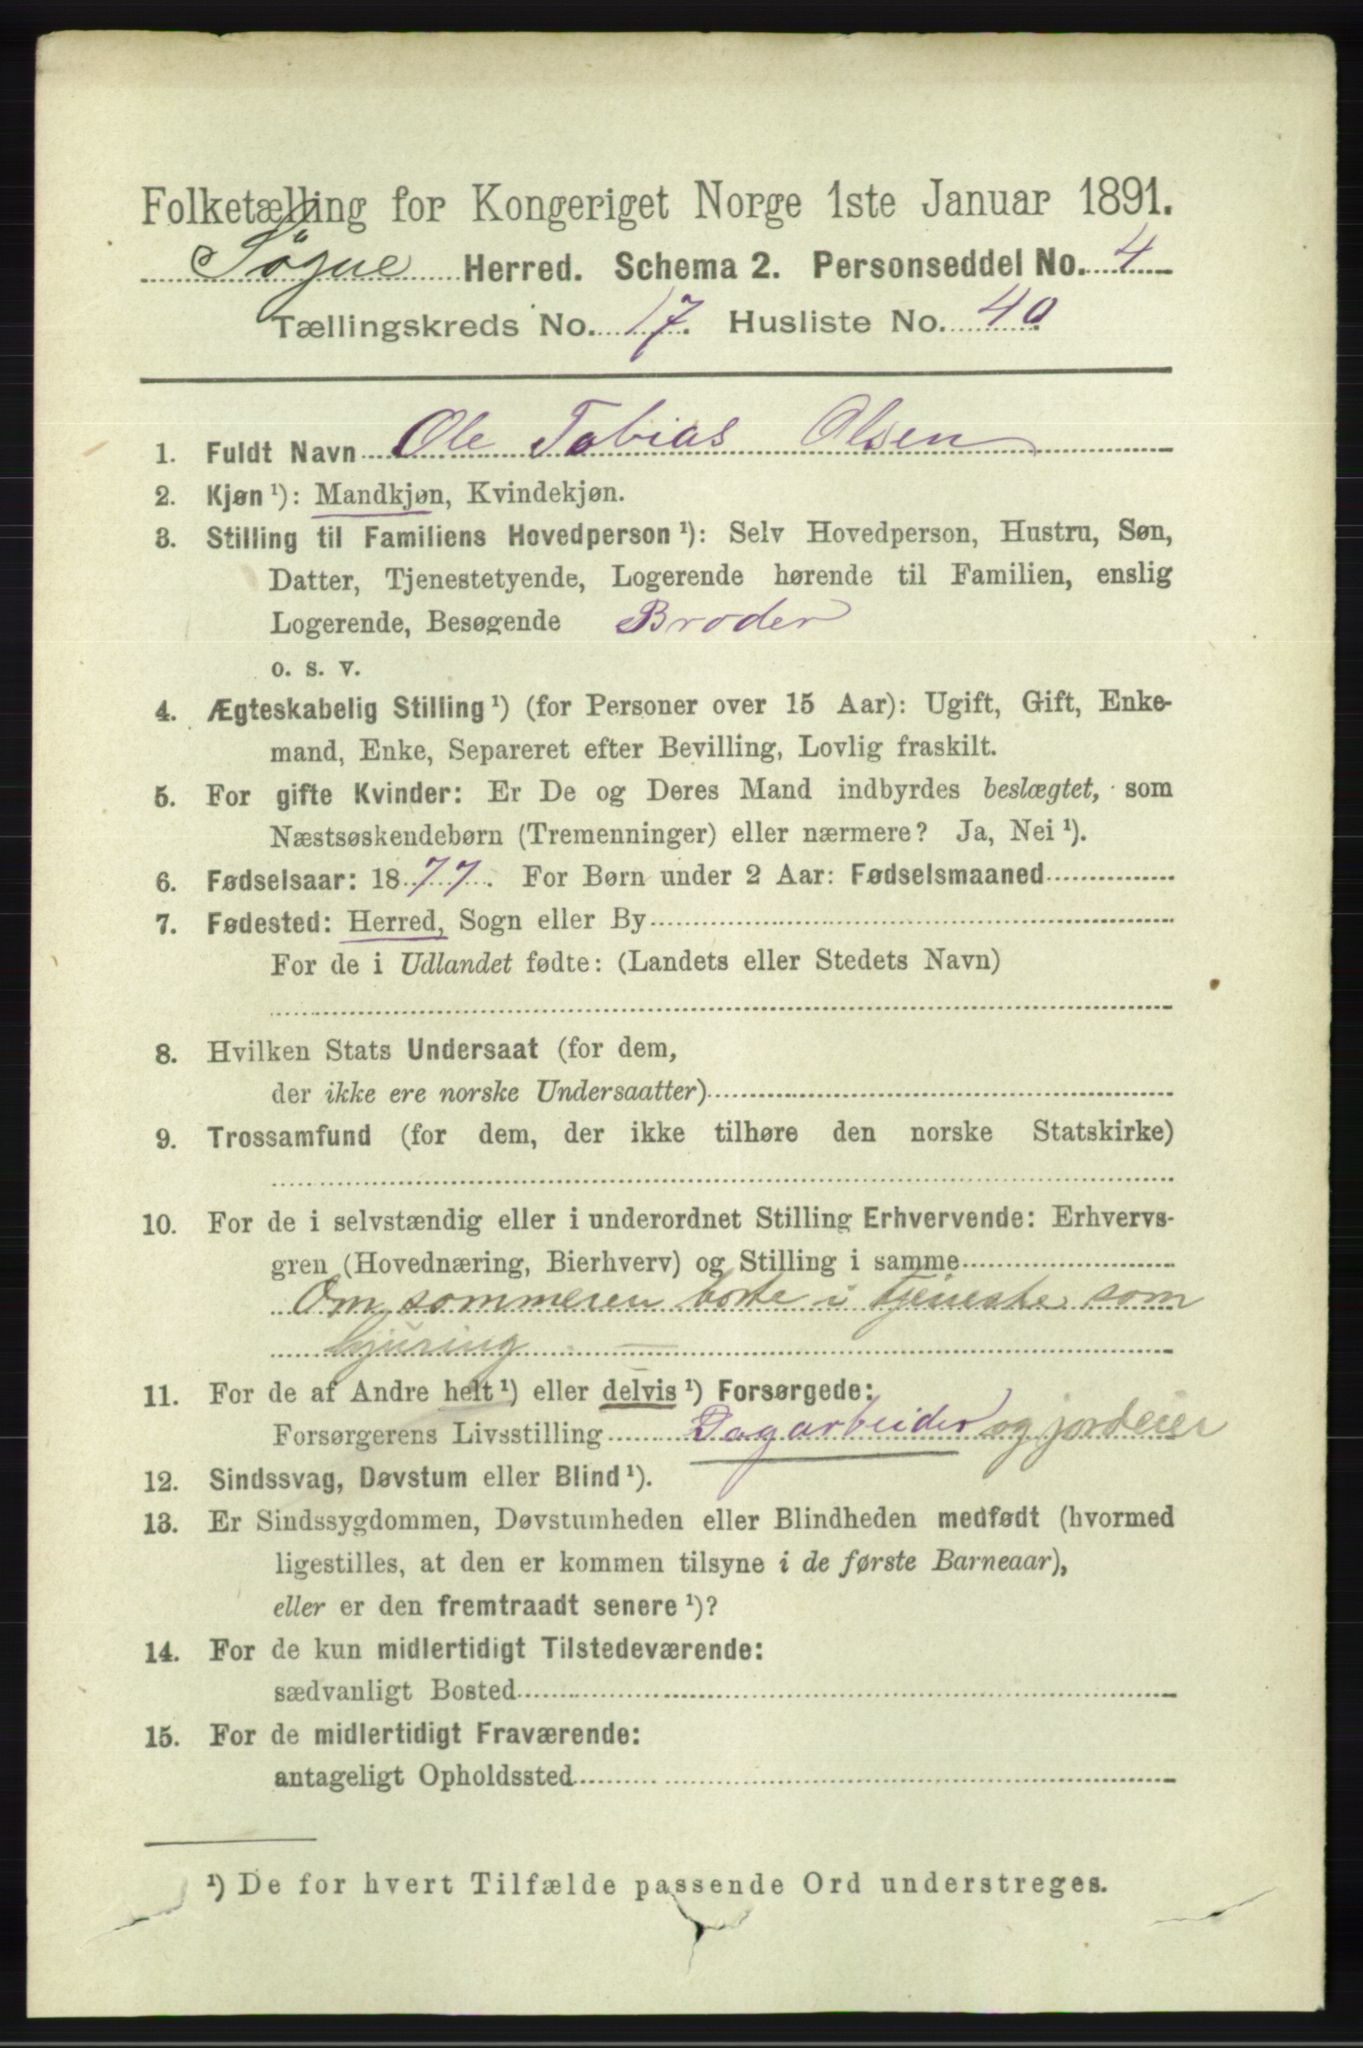 Folketælling for Kongeriget Norge 1ste Januar 1891.
Søgne Herred. Schema 2. Personseddel No. 4
Tællingskreds No. 17. Husliste No. 40.
1. Fuldt Navn Ole Tobias Olsen
2. Kjøn ¹): Mandkjøn, Kvindekjøn.
3. Stilling til Familiens Hovedperson ¹): Selv Hovedperson, Hustru, Søn,
Datter, Tjenestetyende, Logerende hørende til Familien, enslig
Logerende, Besøgende Broder
o. s. v.
4. Ægteskabelig Stilling ¹) (for Personer over 15 Aar): Ugift, Gift, Enke-
mand, Enke, Separeret efter Bevilling, Lovlig fraskilt.
5. For gifte Kvinder: Er De og Deres Mand indbyrdes beslægtet, som
Næstsøskendebørn (Tremenninger) eller nærmere? Ja, Nei ¹).
6. Fødselsaar: 1877. For Børn under 2 Aar: Fødselsmaaned
7. Fødested: Herred, Sogn eller By
For de i Udlandet fødte: (Landets eller Stedets Navn)
8. Hvilken Stats Undersaat (for dem,
der ikke ere norske Undersaatter)
9. Trossamfund (for dem, der ikke tilhøre den norske Statskirke)
10. For de i selvstændig eller i underordnet Stilling Erhvervende: Erhvervs-
gren (Hovednæring, Bierhverv) og Stilling i samme
Om sommeren borte i tjeneste som
hjuring —
11. For de af Andre helt ¹) eller delvis ¹) Forsørgede:
Forsørgerens Livsstilling Dagarbeider og jordeier
12. Sindssvag, Døvstum eller Blind ¹).
13. Er Sindssygdommen, Døvstumheden eller Blindheden medfødt (hvormed
ligestilles, at den er kommen tilsyne i de første Barneaar),
eller er den fremtraadt senere ¹)?
14. For de kun midlertidigt Tilstedeværende:
sædvanligt Bosted
15. For de midlertidigt Fraværende:
antageligt Opholdssted
¹) De for hvert Tilfælde passende Ord understreges.